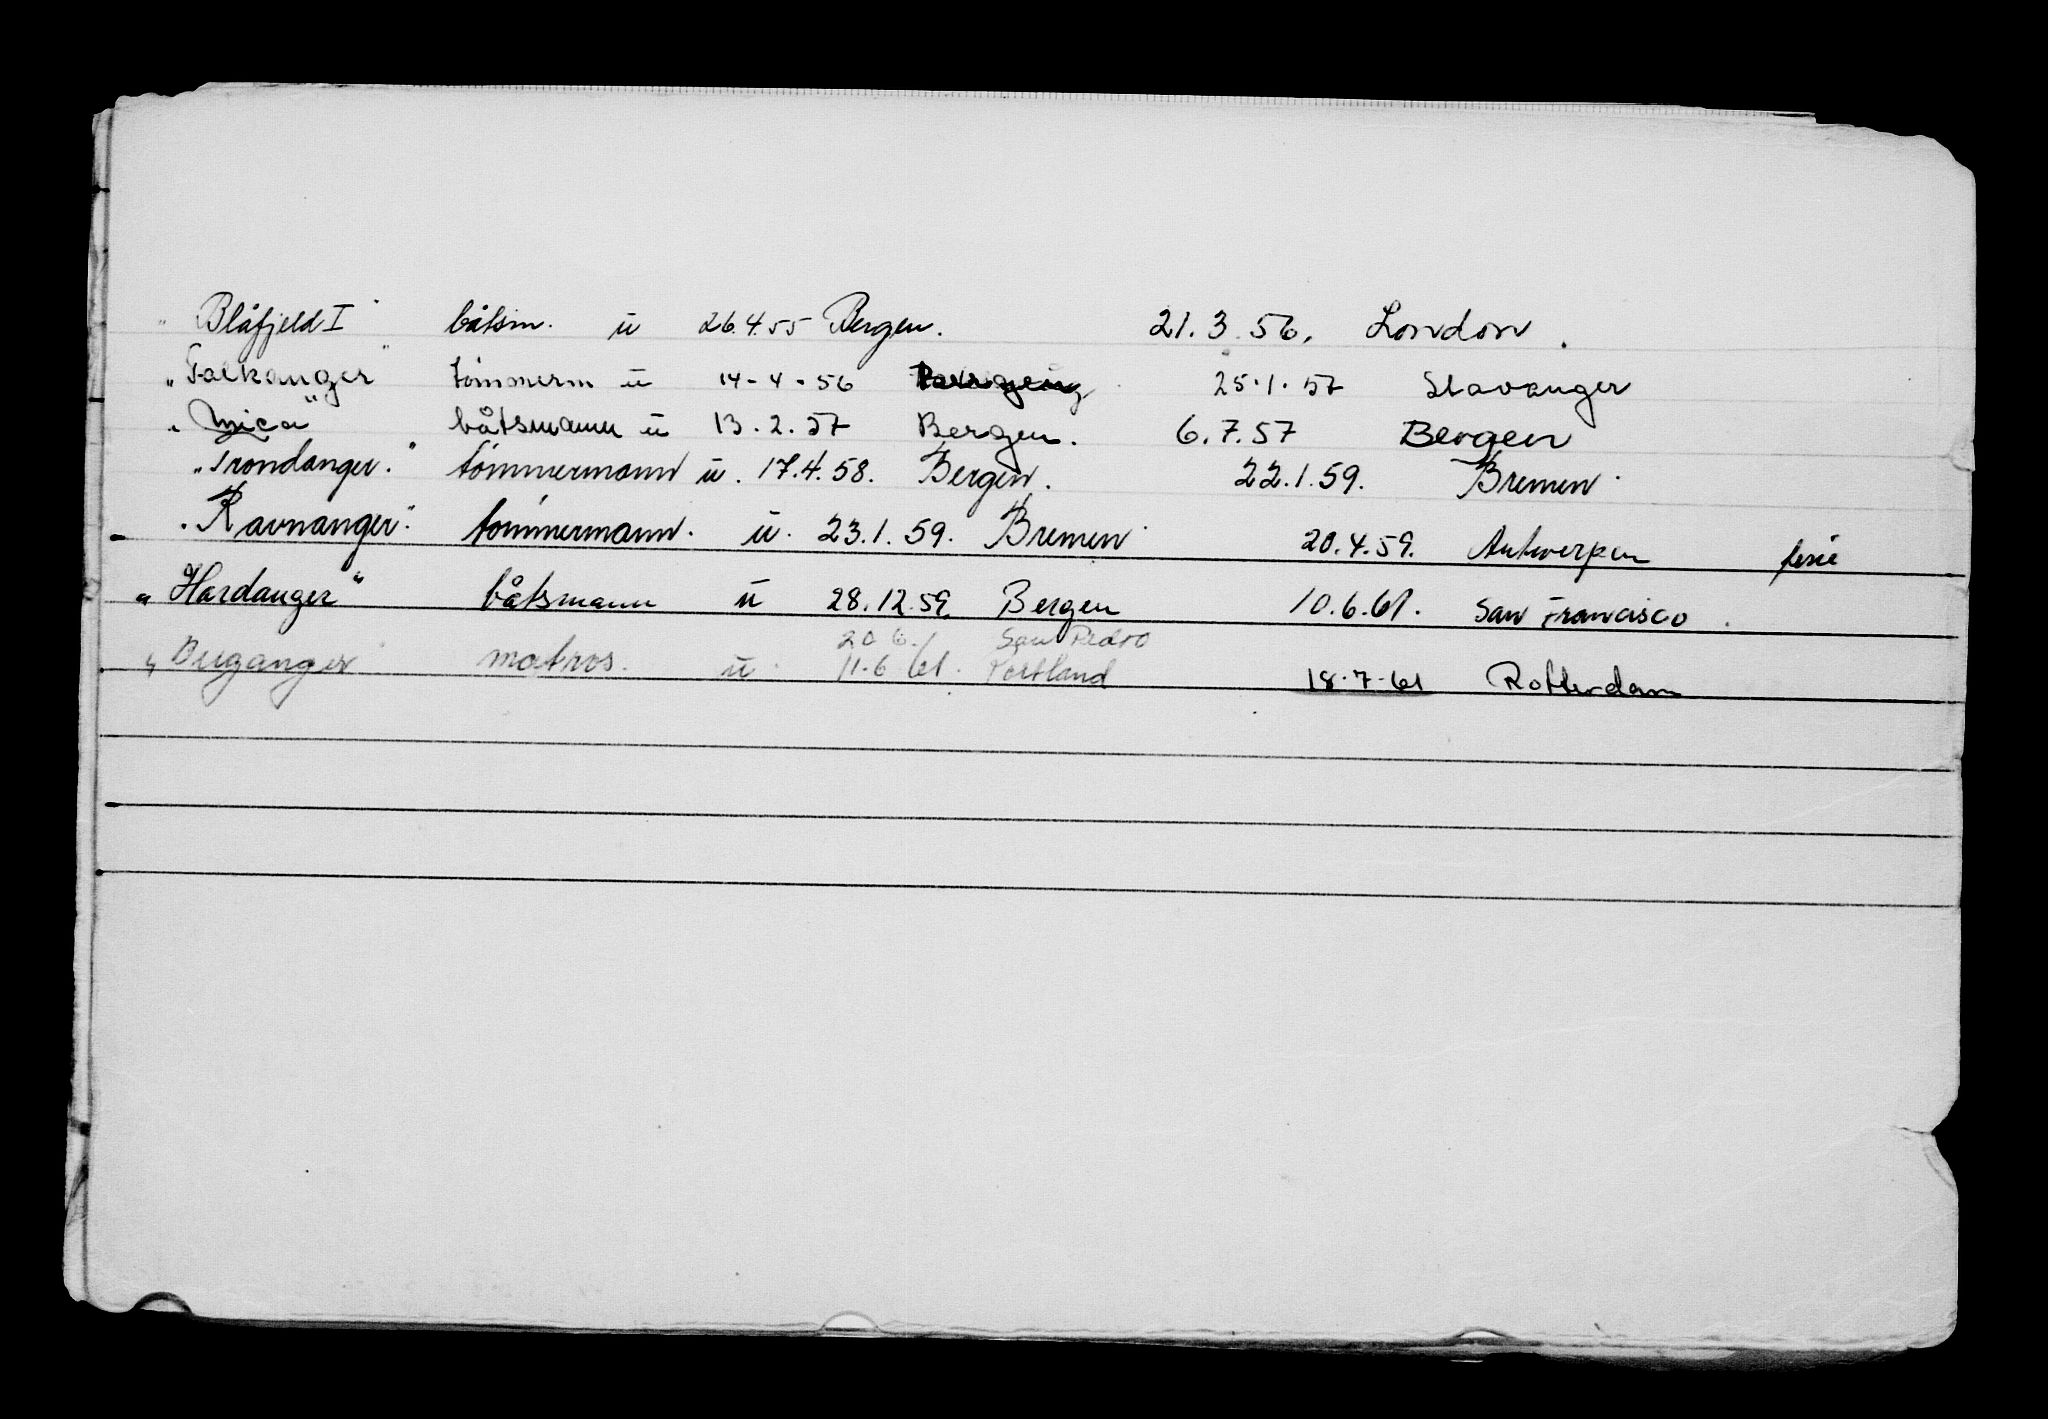 " Blåfjeld I " båtsm. ü 26.4.55 Bergen. 21.3.56. London.
" Falkanger " tømmerm ü 14-4-56 25.1.57 Stavanger
" Mica " båtsmann ü 13.2.57 Bergen. 6.7.57 Bergen
" Trondanger. " tömmermann ü. 17.4.58. Bergen. 22.1.59. Bremen.
" Ravnanger. " tömmermann. ü. 23.1.59. Bremen 20.4.59. Antwerpen ferie
" Hardanger " båtsmann ü 28.12.59. Bergen 10.6.61. San Francisco.
San Pedro
" matros. ü. 11.6.61. Portland 18.7.61 Rotterdam